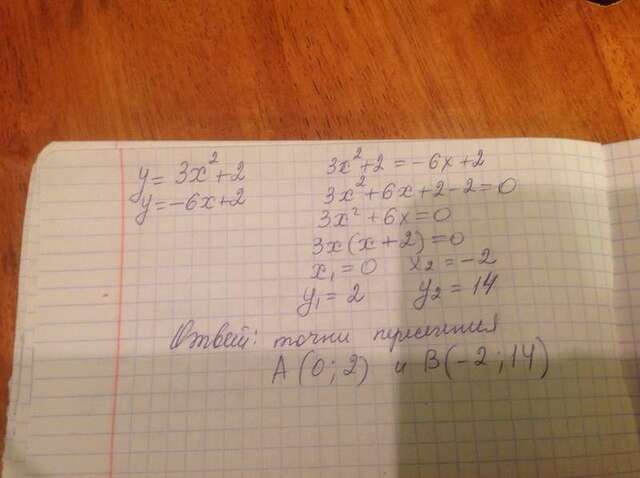 y = 3x² + 2
y = -6x + 2
3x² + 2 = -6x + 2
3x² + 6x + 2 - 2 = 0
3x² + 6x = 0
3x(x + 2) = 0
x₁ = 0 x₂ = -2
y₁ = 2 y₂ = 14
Ответ: точки пересечения
A (0; 2) и B(-2; 14)